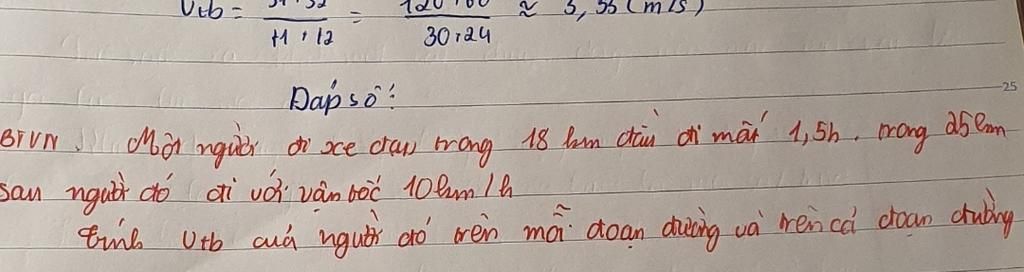 Vtb = S1+S2 / t1+t2 = 120+60 / 30+24 ≈ 3,33 (m/s)
25
Đáp số:
BTVN. Một người đi xe đạp trong 18 km đầu đi mất 1,5h. trong 25km
sau người đó đi với vận tốc 10km/h
tính Vtb của người đó trên mỗi đoạn đường và trên cả đoạn đường